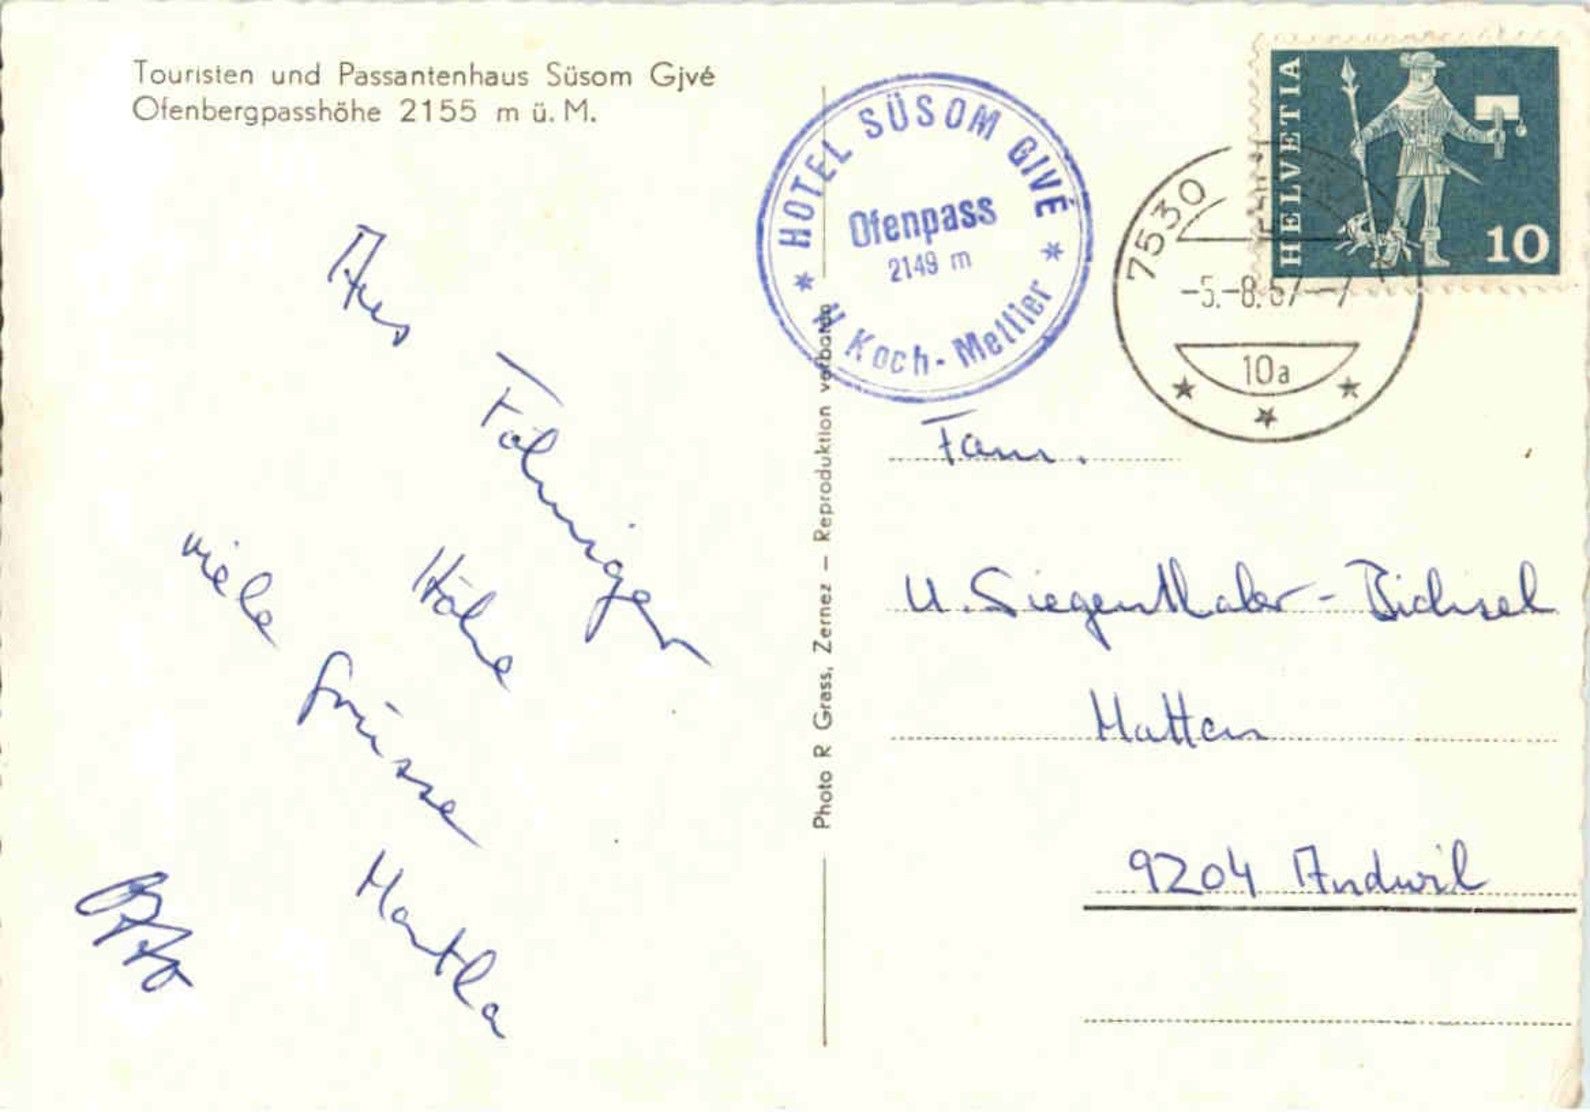 Touristen und Passantenhaus Süsom Gjvé
Ofenbergpasshöhe 2155 m ü. M.
Aus
Föhniger
Höhe
viele
Grüsse
Martha
Photo R Grass, Zernez — Reproduktion verboten
HOTEL SÜSOM GIVÉ
Ofenpass
2149 m
Koch-Mettier
HELVETIA
10
7530
-5.-8.67--7
10a
Fam.
U. Siegenthaler-Bichsel
Matten
9204 Andwil